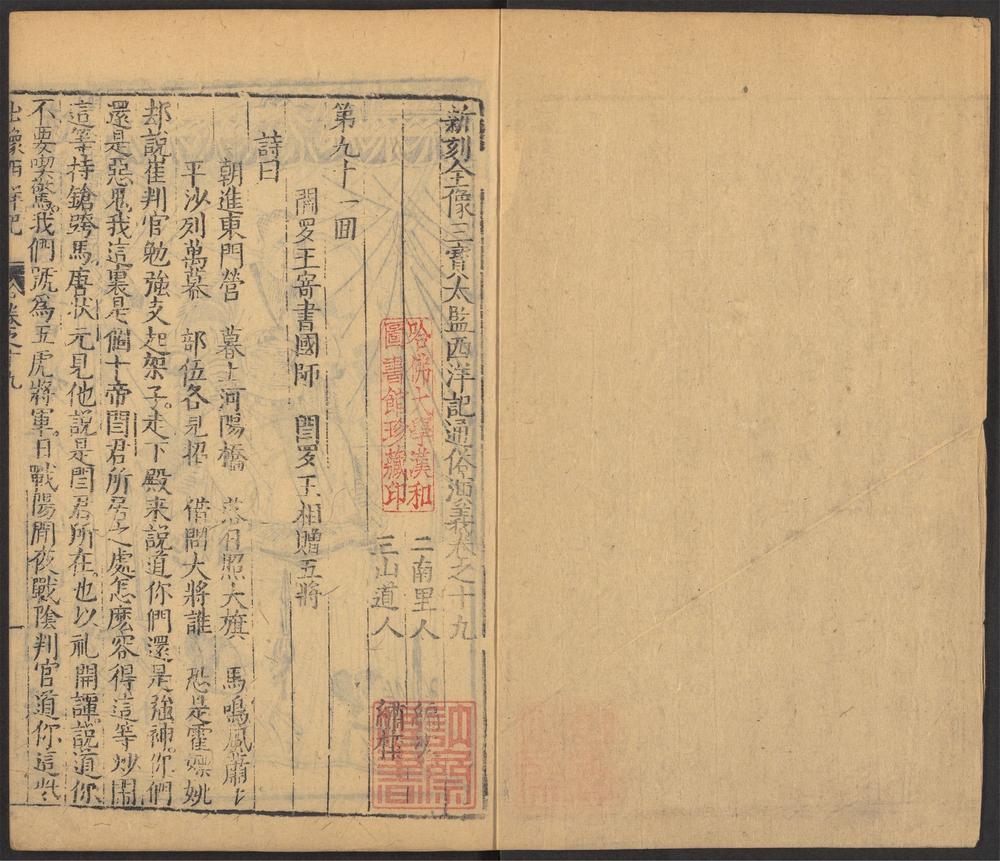 新刻全像三寳太監西洋記通俗演義卷之十九
二南里人 編次
三山道人 繡梓
哈佛大學漢和
圖書館珍藏印
第九十一囬
閻罗王寄書國師　閻罗王相贈五將
詩曰
朝進東門营　暮上河陽橋　落日照大旗　馬鳴風蕭〻
平沙列萬幕　部伍各見招　借問大將誰　恐是霍嫖姚
却說崔判官勉強支起架子。走下殿来說道你們還是強神。你們
還是惡鬼。我這裏是個十帝閻君所居之處怎麽容得這等炒閙
這等持鎗跨馬。唐狀元見他說是閻君所在。也以礼開譚。說道你
不要喫驚。我們號爲五虎將軍。日戰陽間夜戰陰判官道你這些
出像西洋記 卷之十九 一